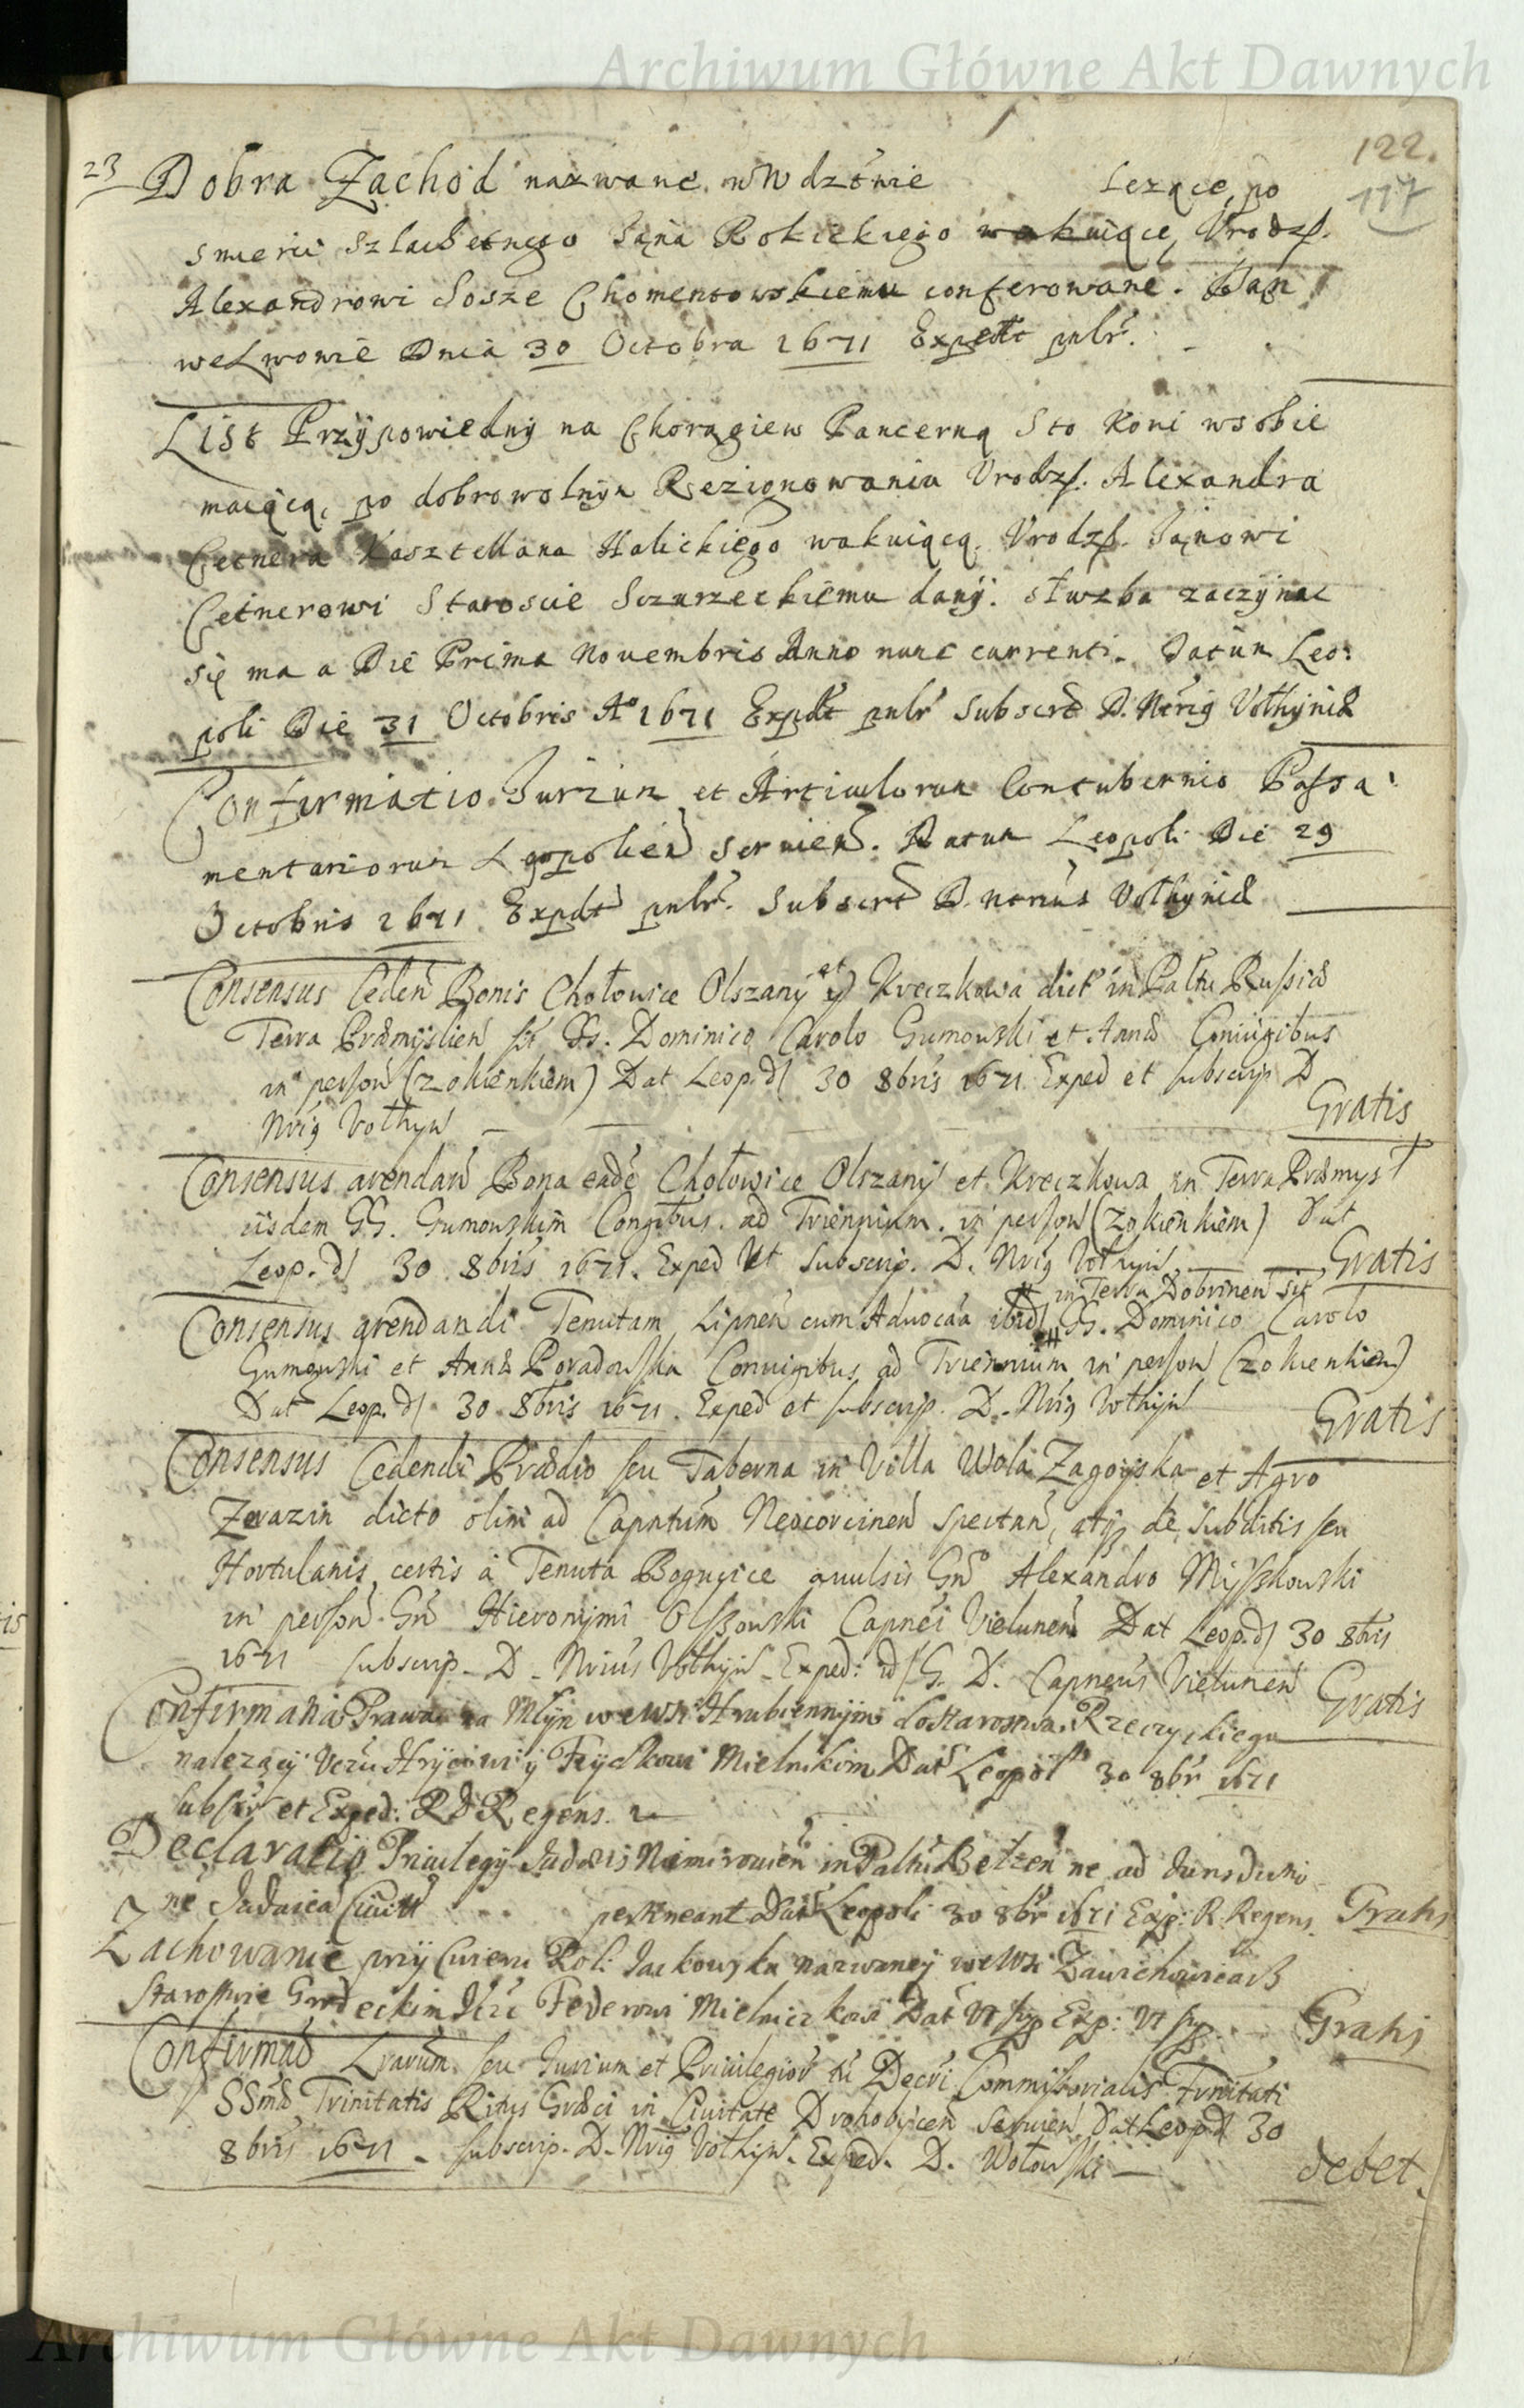 Archiwum Główne Akt Dawnych
122.
117
23 Dobra Zachod nazwane w Wdztwie Lezące, po
smierci Szlachetnego Jana Rokickiego wakuiące, Urodz.
Alexandrowi Sosze Chomentowskiemu conferowane. Dan
we Lwowie Dnia 30 Octobra 1671 Expedt pulr.
List Przypowiedny na Chorągiew Pancerną Sto Koni w sobie
maiącą, po dobrowolnym Rezignowaniu Urodz. Alexandra
Cetnera Kasztellana Halickiego wakuiącą, Urodz. Janowi
Cetnerowi Staroscie Sczurzeckiemu dany. słuzba zaczynac
się ma a Die Prima Novembris Anno nunc currenti. Datum Leo:
poli Die 31 Octobris A° 1671 Expdt pulr Subscrt D. Nrig Vołhyniæ
Confirmatio Jurium et Articulorum Contubernio Passa:
mentariorum Leopolien servien. Datum Leopoli Die 29
Octobris 1671 Expdt pulr. Subscrt D. Nrius Vołhyniæ
Consensus Ceden Bonis Chołowice Olszany et Kreczkowa dict in Paltu Russiæ
Terra Præmyslien sit GG. Dominico Carolo Gumowski et Annæ Coniugibus
in person (z okienkiem) Dat Leop. d/ 30 8bris 1671 Exped et subscrip D
Nrig Vołhyn Gratis
Consensus arendand Bona eadē Chołowice Olszany et Kreczkowa in Terra Præmysl
iisdem GG. Gumowskim Congibus. ad Triennium. in person (z okienkiem) Dat
Leop. d/ 30 8bris 1671. Exped et Subscrip. D. Nrig Vołhyn Gratis
in Terra Dobrinen sit
Consensus arendandi Tenutam Lipnen cum Advocaa ibid/ GG. Dominico Carolo
Gumowski et Annæ Poradowska Coniugibus ad Triennium in person (z okienkiem)
Dat Leop. d/ 30 8bris 1671. Exped et subscrip. D. Nrig Vołhyn Gratis
Consensus Cedendi Prædio seu Taberna in Villa Wola Zagoyska et Agro
Zerazin dicto olim ad Capntum Neocorcinen spectan, atq de subditis seu
Hortulanis certis à Tenuta Bogucice avulsis Gn° Alexandro Myszkowski
in person Gn Hieronymi Olszowski Capnei Vielunen Dat Leop. d/ 30 8bris
1671 subscrip. D. Nrius Vołhyn. Exped: id/ G. D. Capneus Vielunen Gratis
Confirmatia Prawa na Młyn we Wsi Hrubiennym do Starostwa Rzeczyckiego
nalezący Uczu Hrycowi y Fryckowi Mielnikom Dat Leopol 30 8br 1671
subscr et Exped: Rd Regens.
Declaratio Privilegij Judæis Nimirowien in Paltu Bełzen ne ad Jurisdictio
ne Judaica Civitt pertineant Dat Leopoli 30 8br 1671 Exp: R. Regens. Gratis
Zachowanie przy Cwierci Roli Jackowska nazwaney we Wsi Zawichowicach
Starostwie Grodeckim Uczc Federowi Mielniczkowi Dat Vt sup Exp: Vt sup. Gratis
Confirmao Lrarum seu Jurium et Privilegior tū Decri Commissorialis Frnitati
SSmæ Trinitatis Ritus Græci in Civitate Drohobycen servien Dat Leop d/ 30
8bris 1671. subscrip. D. Nrig Vołhyn. Exped. D. Wołowski debet.
Archiwum Główne Akt Dawnych